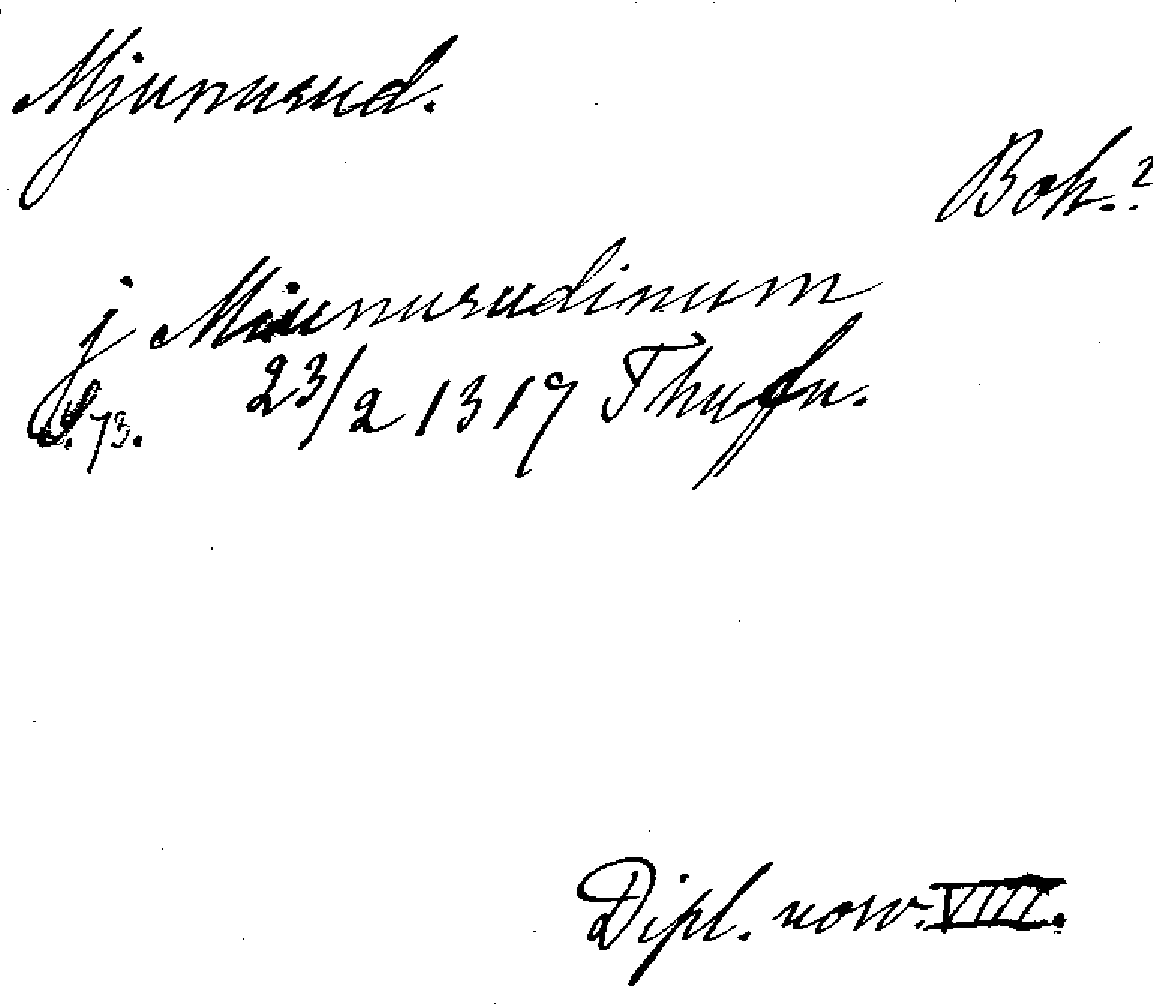 Mjunurud.
Boh.?
j Miunurudinum
S. 73. 23/2 1319 Thufn.
Dipl. norv. VIII.